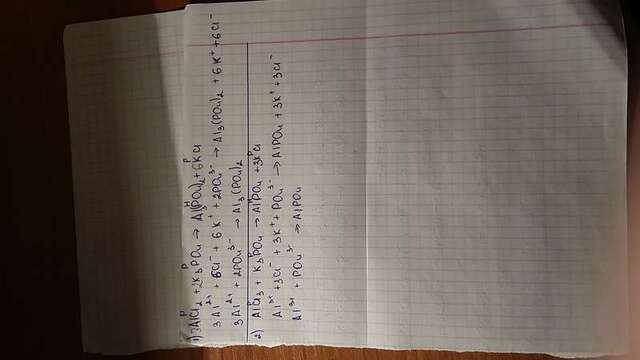 1) 3AlCl₂ + 2K₃PO₄ → Al₃(PO₄)₂ + 6KCl
3Al²⁺ + 6Cl⁻ + 6K⁺ + 2PO₄³⁻ → Al₃(PO₄)₂ + 6K⁺ + 6Cl⁻
3Al²⁺ + 2PO₄³⁻ → Al₃(PO₄)₂
2) AlCl₃ + K₃PO₄ → AlPO₄ + 3KCl
Al³⁺ + 3Cl⁻ + 3K⁺ + PO₄³⁻ → AlPO₄ + 3K⁺ + 3Cl⁻
Al³⁺ + PO₄³⁻ → AlPO₄